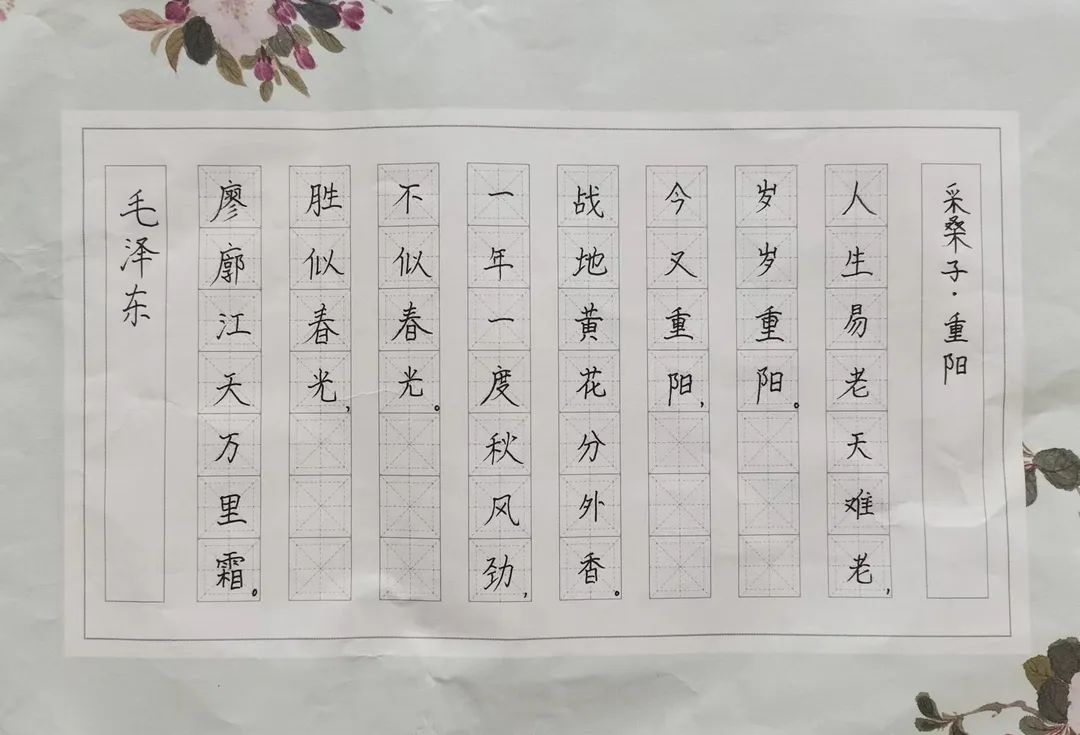 采桑子·重阳
人生易老天难老,
岁岁重阳。
今又重阳,
战地黄花分外香。
一年一度秋风劲,
不似春光。
胜似春光,
廖廓江天万里霜。
毛泽东